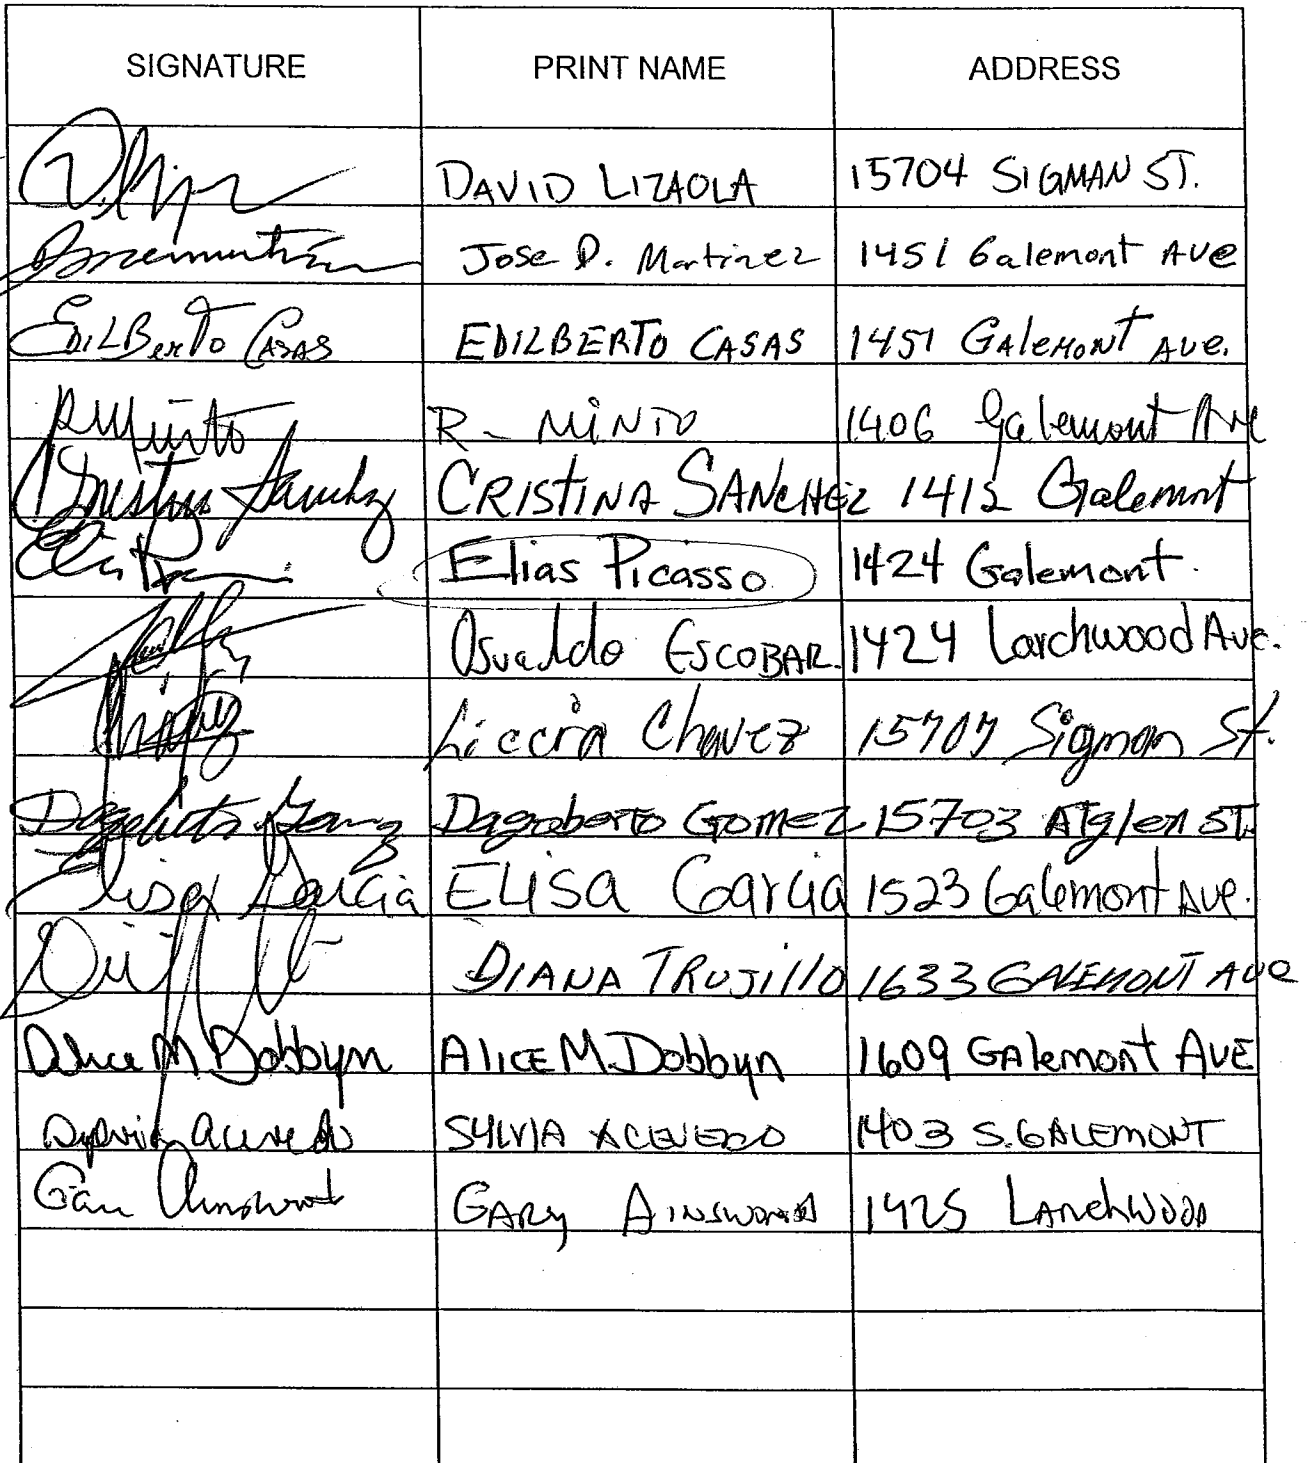 SIGNATURE PRINT NAME ADDRESS
DAVID LIZAOLA 15704 SIGMAN ST.
Jose D. Martinez 1451 Galemont Ave
EDilBerto CASAS EDILBERTO CASAS 1451 GAleMONT AVe.
RMinto R- MINTO 1406 Galemont Ave
Cristina Sanchez CRISTINA SANCHEZ 1412 Galemont
Elias Picasso 1424 Galemont.
Osvaldo ESCOBAR. 1424 Larchwood Ave.
Chavez Chavez 15707 Sigman St.
Dagoberto Gomez Dagoberto Gomez 15703 Atglen ST.
Elisa Garcia ELISA Garcia 1523 Galemont Ave.
DIANA TRUJIllO 1633 GALEMONT AVe
Alice M Dobbyn AlicE M. Dobbyn 1609 GAlemont AVE
Sylvia Acevedo SYLVIA ACEVEDO 1403 S. GALEMONT
Gary Ainsworth GARy AINSWORTH 1425 LArchWood